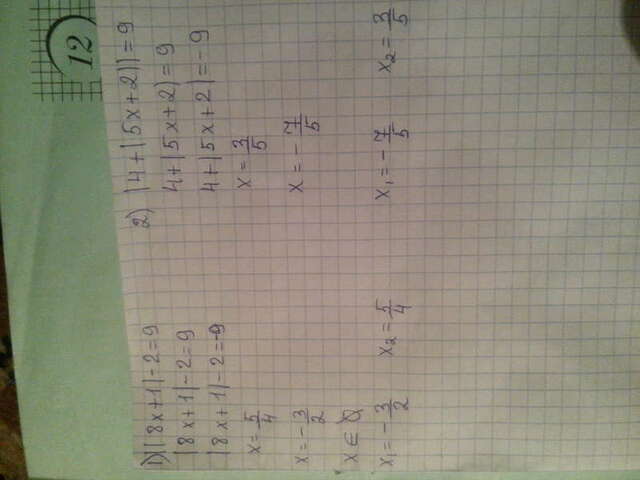 12
1) |8x+1|-2=9
|8x+1|-2=9
|8x+1|-2=-9
x=5/4
x=-3/2
x∈∅
x₁=-3/2 x₂=5/4
2) |4+|5x+2||=9
4+|5x+2|=9
4+|5x+2|=-9
x=3/5
x=-7/5
x₁=-7/5 x₂=3/5